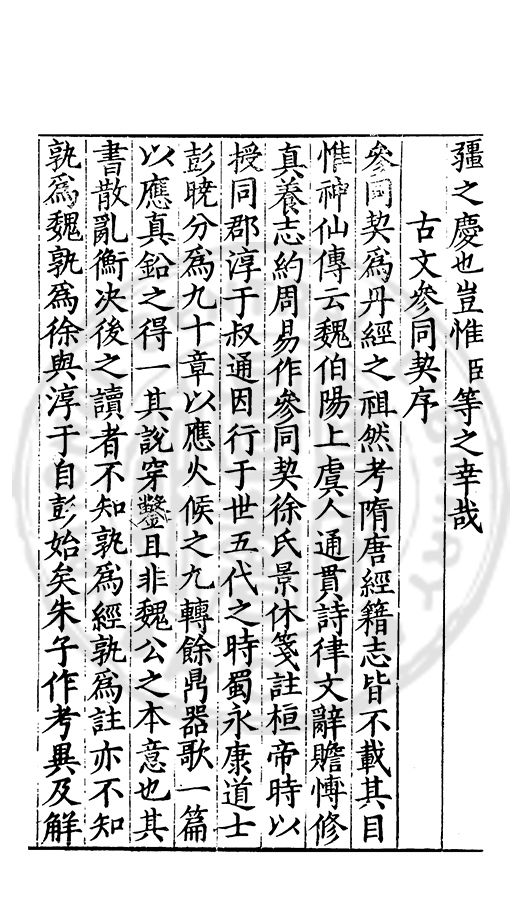 疆之慶也豈惟臣等之幸哉
古文參同契序
參同契爲丹經之祖然考隋唐經籍志皆不載其目
惟神仙傳云魏伯陽上虞人通貫詩律文辭贍博修
真養志約周易作參同契徐氏景休箋註桓帝時以
授同郡淳于叔通因行于世五代之時蜀永康道士
彭曉分爲九十章以應火候之九轉餘鼎器歌一篇
以應真鉛之得一其說穿鑿且非魏公之本意也其
書散亂衡決後之讀者不知孰爲經孰爲註亦不知
孰爲魏孰爲徐與淳于自彭始矣朱子作考異及解